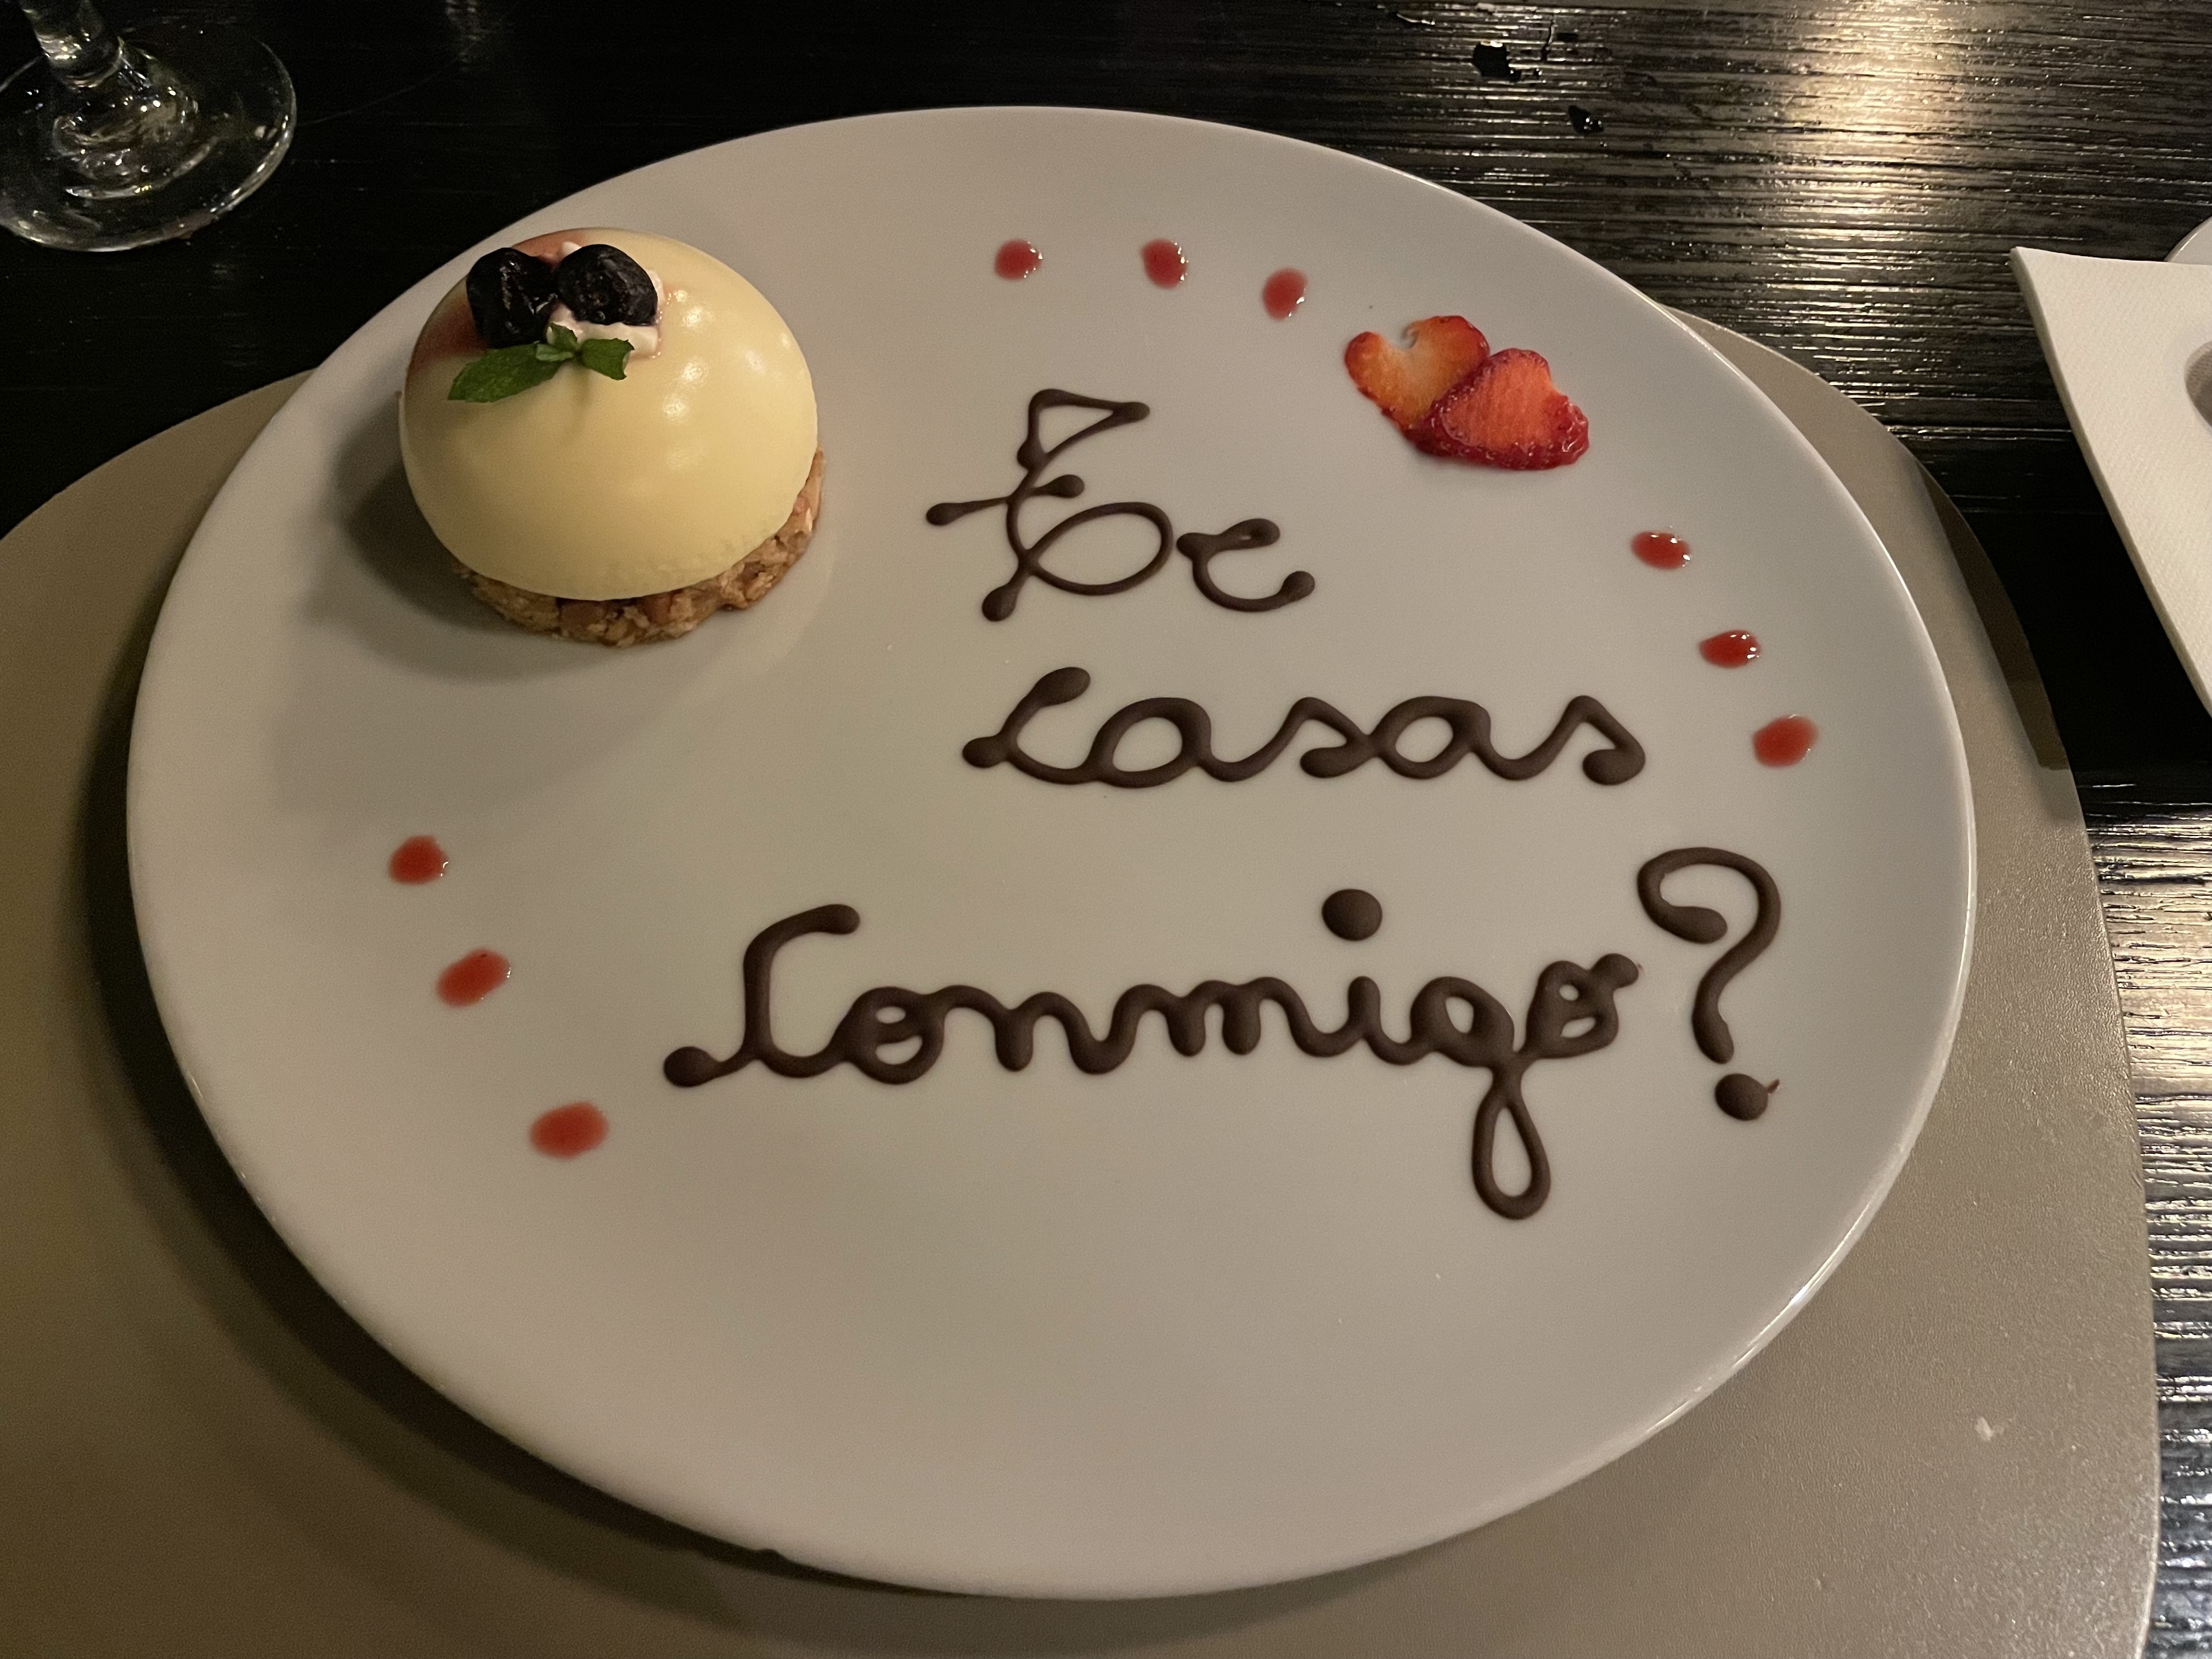 Te
casas
Conmigo?